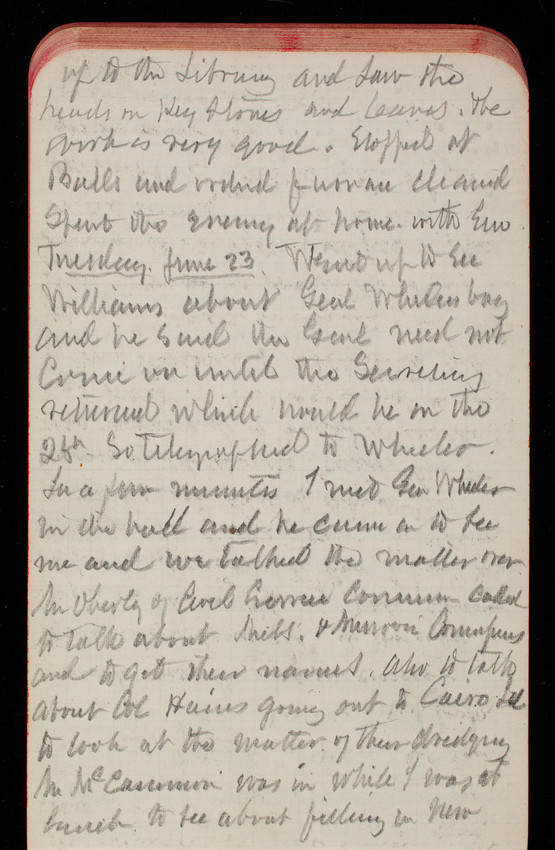 up to the Library and saw the
heads on Key Stones and leaves. The
work is very good. Stopped at
Balls and ordered furnace cleaned
Spent the evening at home with Em
Tuesday. June 23. Went up to see
Williams about Genl
and he said the Genl need not
Come in until the Secretary
returned which would be on the
So telegraphed to Wheeler.
In a few minutes I met Gen Wheeler
in the hall and he came in to see
me and we talked the matter over
Mr Oberly of Civil Service Commn called
to talk about Miss. & Missouri
and to get their names. also to talk
about Col Hains going out to Cairo Ill
to look at the matter of their dredging
Mr McCammon was in while I was at
lunch to see about filling in New